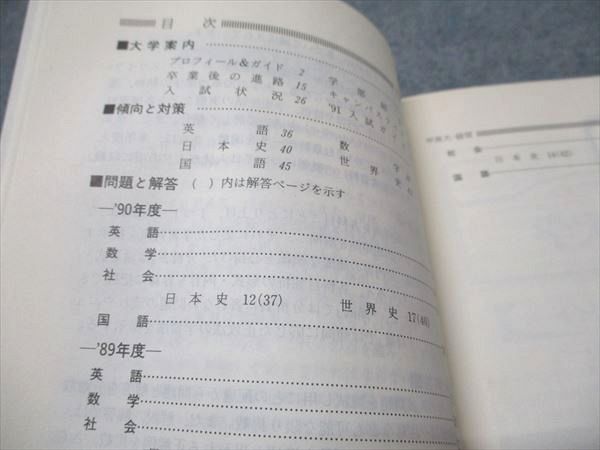 目次
■大学案内
プロフィール&ガイド 2 学部
卒業後の進路 15 キャンパス
入試状況 26 '91入試ガイ
■傾向と対策
英語 36 数学
日本史 40 世界史
国語 45
■問題と解答 ( )内は解答ページを示す
—'90年度—
英語
数学
社会
日本史 12(37) 世界史 17(46)
国語
—'89年度—
英語
数学
社会
社会
日本史
国語